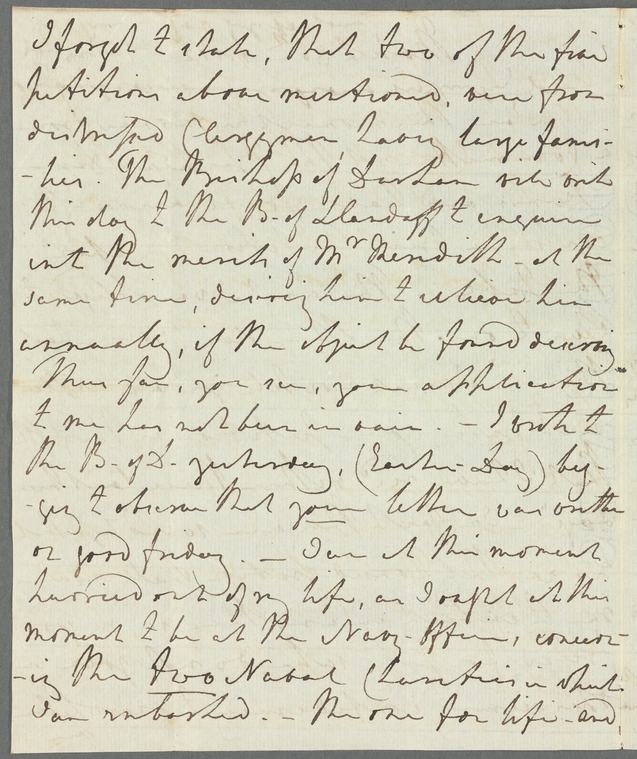 I forgot to state, that two of the five
petitions above mentioned, were from
distressed Clergymen, having large fami-
-lies. The Bishop of Durham will write
this day to the B- of Llandaff to enquire
into the merits of Mr Meredith - at the
same time, desiring him to relieve him
annually, if the object be found deserving
Thus far, you see, your application
to me has not been in vain. - I wrote to
the B- of D- yesterday, (Easter-Day) beg-
-ging to observe that your letter was written
on good friday. - I am at this moment
hurried out of my life, as I ought at this
moment to be at the Navy-Office, concer-
-ing the two Naval Charities in which
I am embarked. - the one for life - and